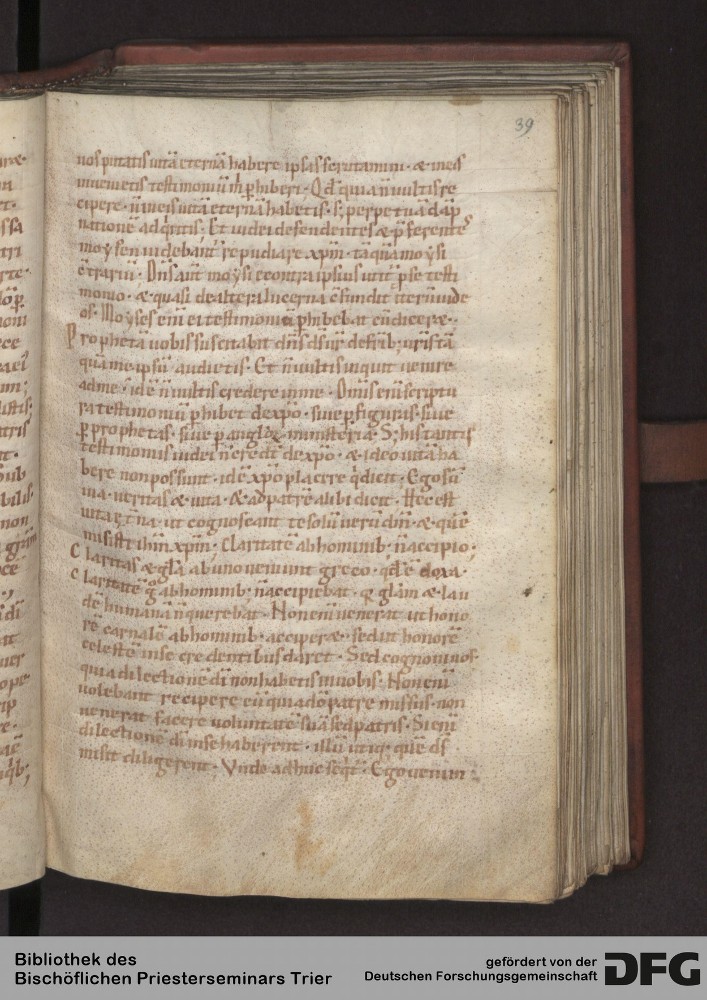 39
uos putatis uitā eternā habere ipsas scrutamini · & meis
inuenietis testimoniū m̄ phiberi · Qđ quia n̄ uultis re
cipere · n̄ in eis uitā eternā habetis · s; perpetuā dāp
natione adqritis · Et iudei defendentes & p̄ferente
moysen uidebant̄ repudiare xp̄m · ta quā moysi
c̄trariū · Dn̄s aut̄ moysi econtra ipsius utit̄ p se testi
monio · & quasi de altera lucerna c̄fundit iterū iude
os · Moyses eni ei testimoniū phibebat eū dicere ·
Prophetā uobis suscitabit dn̄s ds ur̄ de frib; uris tā
quā me ipsū audietis · Et n̄ uultis inquit uenire
ad me · id ē n̄ uultis credere in me · Om̄is eni scriptu
ra testimoniū phibet de xp̄o · siue p figuras · siue
p prophetas · siue p anglōꝝ ministeria · S; his tantis
testimoniis iudei n̄ credt de xp̄o · & ideo uitā ha
bere non possunt · id ē xp̄o placere q̄ dicit · Ego sū
uia · ueritas & uita · & ad patrē alibi dicit · Hec est
uita etna · ut cognoscant te solū uerū dm̄ · & quē
misisti ihm̄ xp̄m ; Claritatē ab hominib; n̄ accipio ;
Claritas & glā ab uno ueniunt greco · qđ ē doxa ·
Claritatē g° ab hominib; n̄ accipiebat · q glām & lau
dē humanā n̄ querebat · Non eni uenerat ut hono
rē carnalē ab hominib; acciper& · sed ut honorē
celestē in se credentibus daret · Sed cognoui uos ·
quia dilectionē dī non habetis in uobis · Non eni
uolebant recipere eū quia do patre missus · non
uenerat facere uoluntatē suā sed patris · Si eni
dilectionē dī in se haberent · illū utiq; quē ds
misit diligerent ; Vnde adhuc seqt̄ · Ego ueni in
Bibliothek des
Bischöflichen Priesterseminars Trier
gefördert von der
Deutschen Forschungsgemeinschaft
DFG